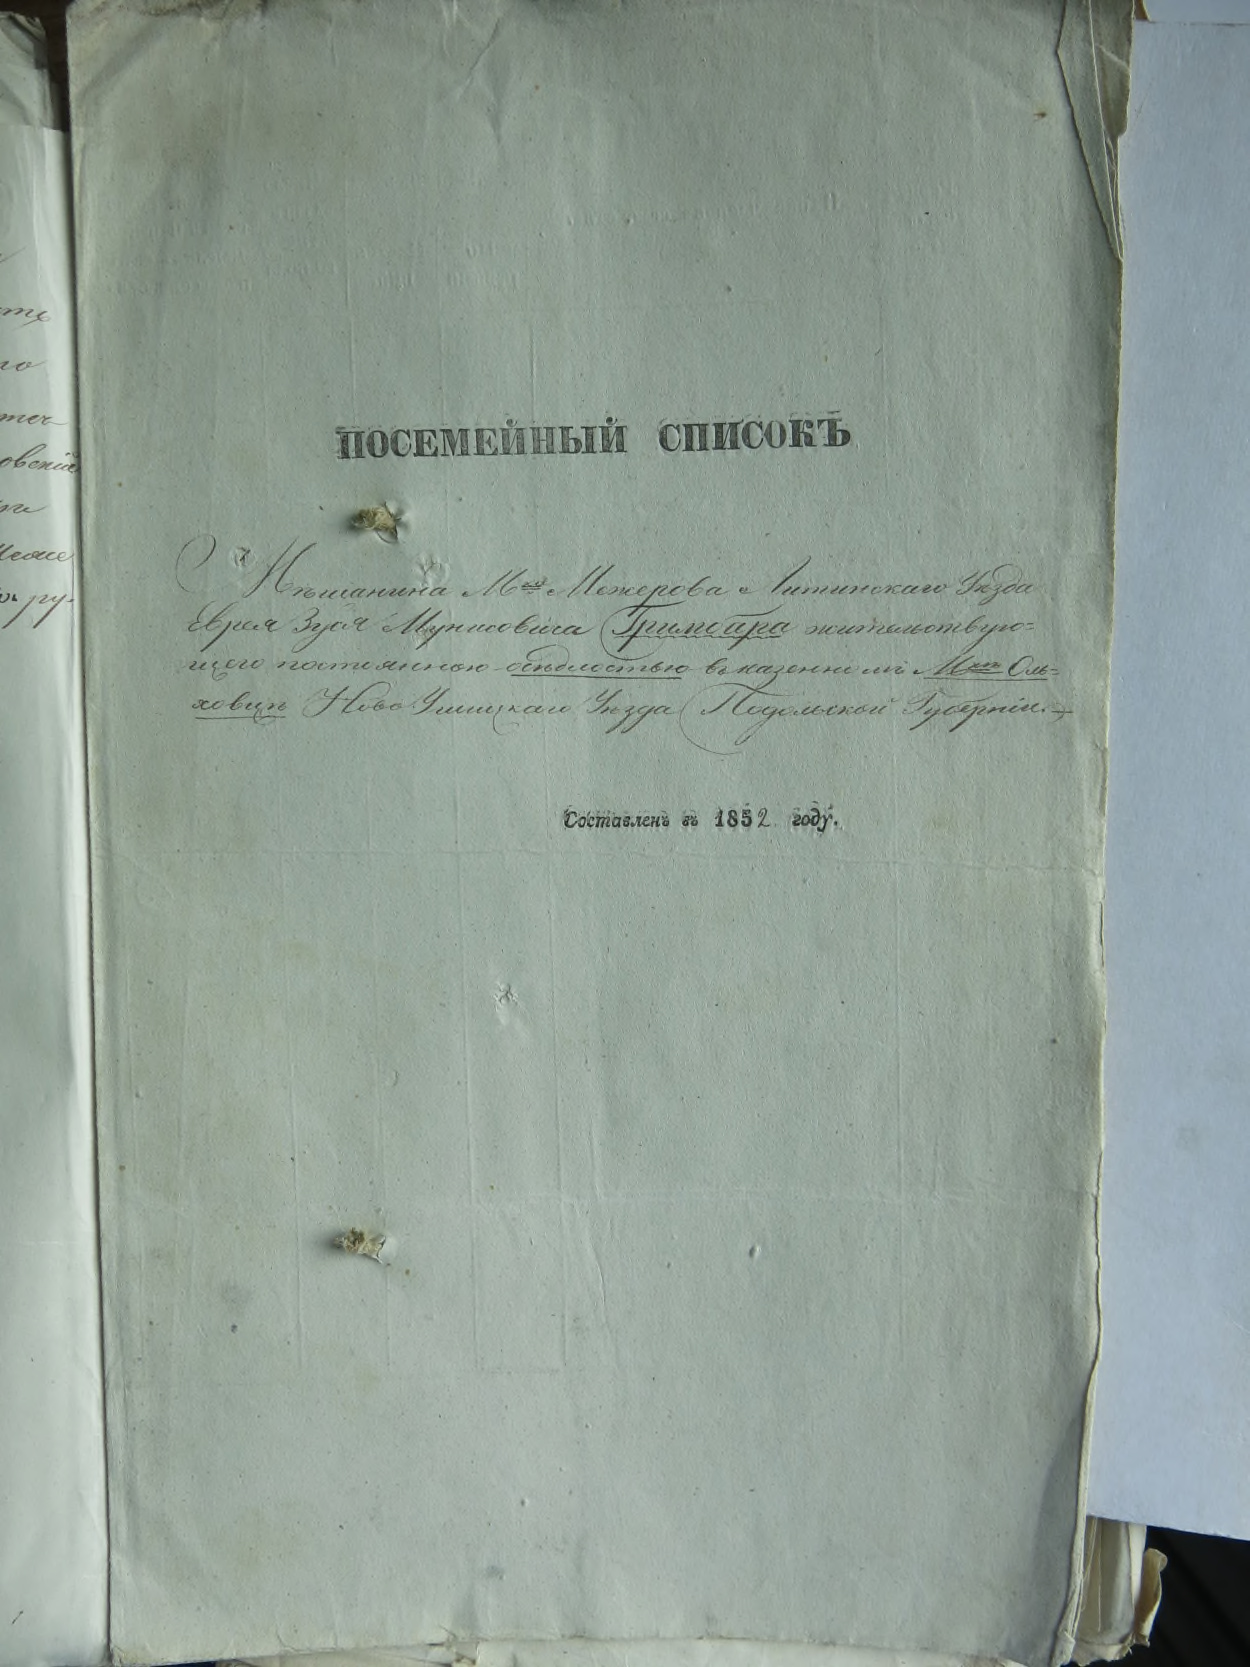 ПОСЕМЕЙНЫЙ СПИСОКЪ
Мѣщанина М<sup>ка</sup> Межерова Литинскаго Уѣзда
Еврея Зуся Мунисовича Гримбира жительствую=
щего постоянною осѣдлостью въ казенномъ М<sup>кѣ</sup> Оль=
ховцѣ Ново Ушицкаго Уѣзда Подольской Губерніи.
Составленъ въ 1852 году.